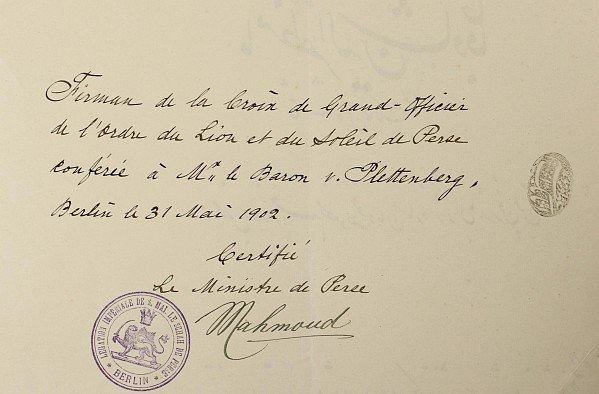 Firman de la Croix de Grand-Officier
de l'Ordre du Lion et du Soleil de Perse
conférée à Mr. le Baron v. Plettenberg.
Berlin le 31 Mai 1902.
Certifié
Le Ministre de Perse
Mahmoud
LÉGATION IMPÉRIALE DE S. MAJ. LE SCHAH DE PERSE
* BERLIN *